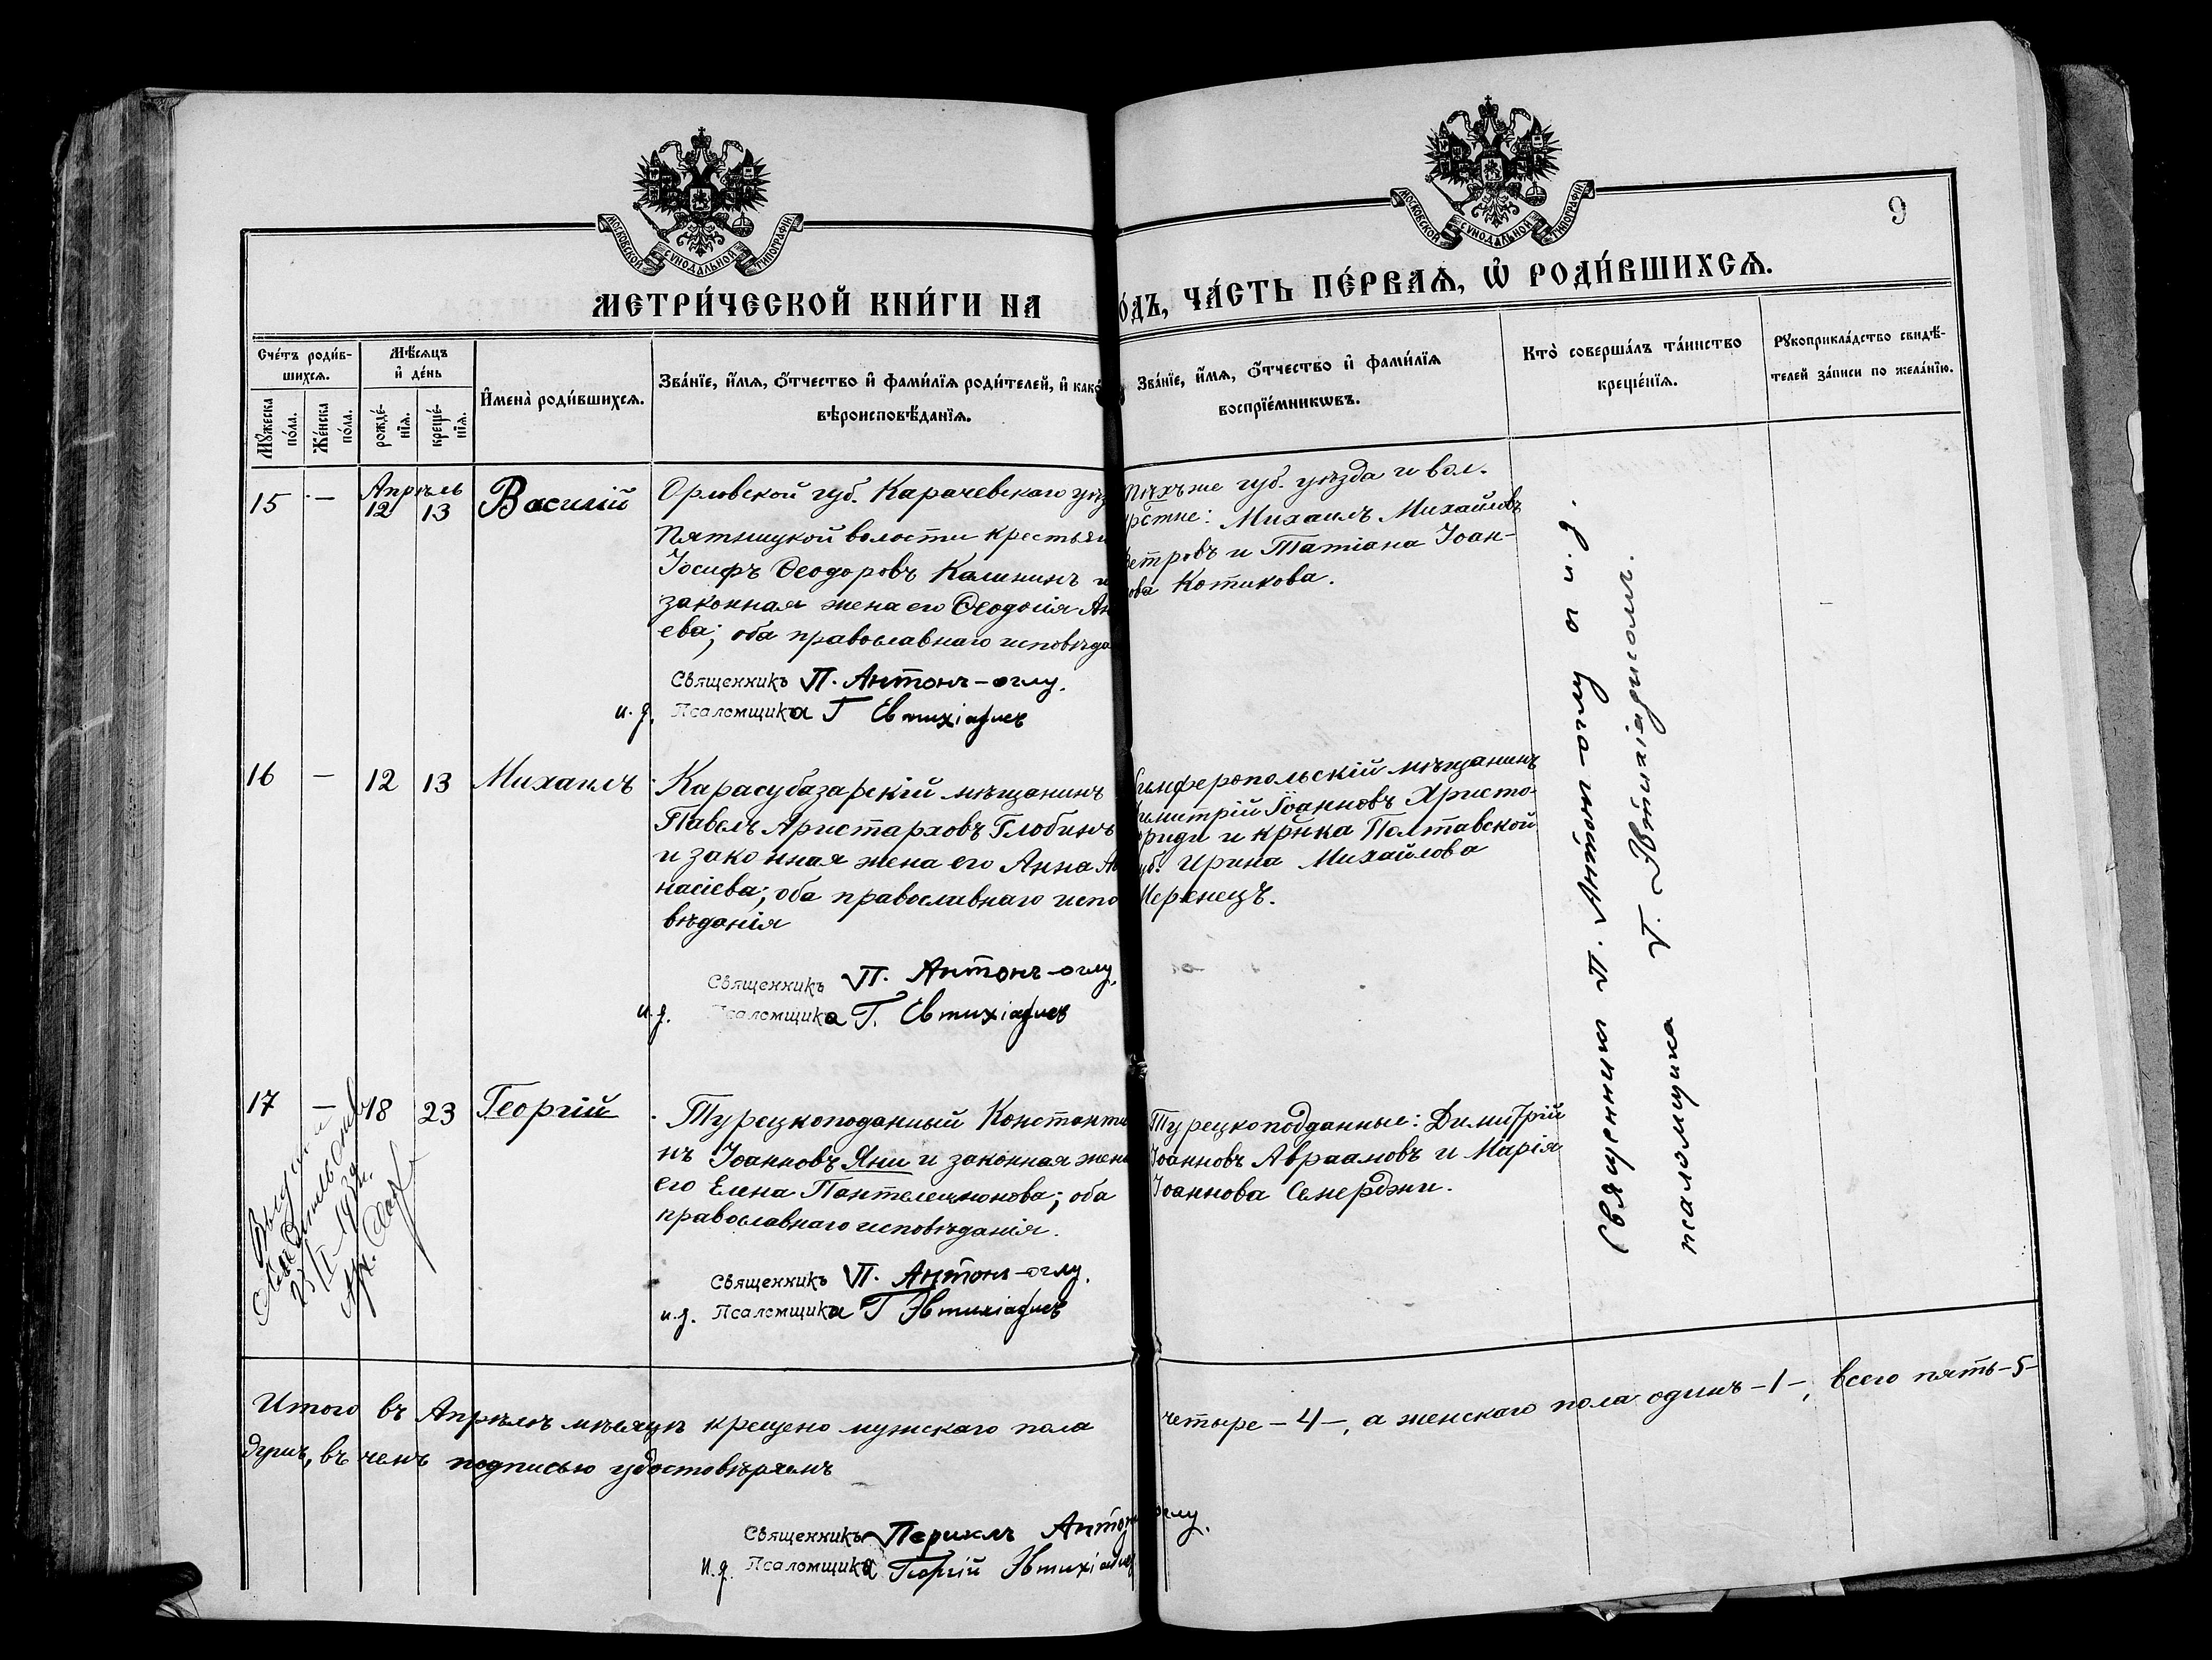 МОСКОВСКОЙ СѴНОДАЛЬНОЙ ТИПОГРАФІИ
МОСКОВСКОЙ СѴНОДАЛЬНОЙ ТИПОГРАФІИ
9
МЕТРИ́ЧЕСКОЙ КНИ́ГИ НА
О́ДЪ, ЧА́СТЬ ПЕ́РВАѦ, Ѽ РОДИ́ВШИХСѦ.
Сче́тъ роди́в-
шихсѧ.
Мѣ́сѧцъ
и҆ де́нь
Мꙋ́жеска
по́ла.
Же́нска
по́ла.
рожде́-
нїѧ.
креще́-
нїѧ.
И҆мена̀ роди́вшихсѧ.
Зва́нїе, и҆́мѧ, ѻ҆́тчество и҆ фами́лїѧ роди́телей, и҆ како́
вѣроисповѣ́данїѧ.
Зва́нїе, и҆́мѧ, ѻ҆́тчество и҆ фами́лїѧ
воспрїе́мникѡвъ.
Кто̀ соверша́лъ та́инство
креще́нїѧ.
Рꙋкоприкла́дство свидѣ́-
телей за́писи по жела́нїю.
15 — Апрѣль 12 13 Василій
Орловской губ. Карачевскаго уѣз
Пятницкой волости крестьян
Іосифъ Ѳеодоровъ Калининъ и
законная жена его Ѳеодосія Ан
ева; оба православнаго исповѣда
Священникъ П. Антонъ-оглу.
и. д. Псаломщика Г Евтихіадисъ
Тѣхъже губ. уѣзда и вол.
Михаилъ Михайловъ
етровъ и Татіана Іоан-
ова Котикова.
16 — 12 13 Михаилъ
Карасубазарскій мѣщанинъ
Павелъ Аристарховъ Глобинъ
и законная жена его Анна Аѳ
насіева; оба православнаго испо
вѣданія
Священникъ П. Антонъ-оглу.
и. д. Псаломщика Г. Евтихіадисъ
имферопольскій мѣщанинъ
имитрій Іоанновъ Христо-
риди и крнка Полтавской
уб. Ирина Михайлова
17 — 18 23 Георгій
Турецкоподанный Константи
нъ Іоанновъ Яни и законная жена
его Елена Пантелеимонова; оба
православнаго исповѣданія.
Священникъ П. Антонъ-оглу.
и. д. Псаломщика Г Эвтихіадисъ
Турецкоподданные: Димитрій
Іоанновъ Авраамовъ и Марія
Іоаннова Семерджи.
23/II
Священникъ П. Антонъ-оглу и и. д.
псаломщика Г. Эвтихіадисомъ.
Итого въ Апрѣлѣ мѣсяцѣ крещено мужскаго пола
четыре - 4 -, а женскаго пола одинъ - 1 -, всего пять - 5 -
душъ, въ чемъ подписью удостовѣряемъ
Священникъ Периклъ Антонъ оглу.
И. д. Псаломщика Георгій Эвтихіадис